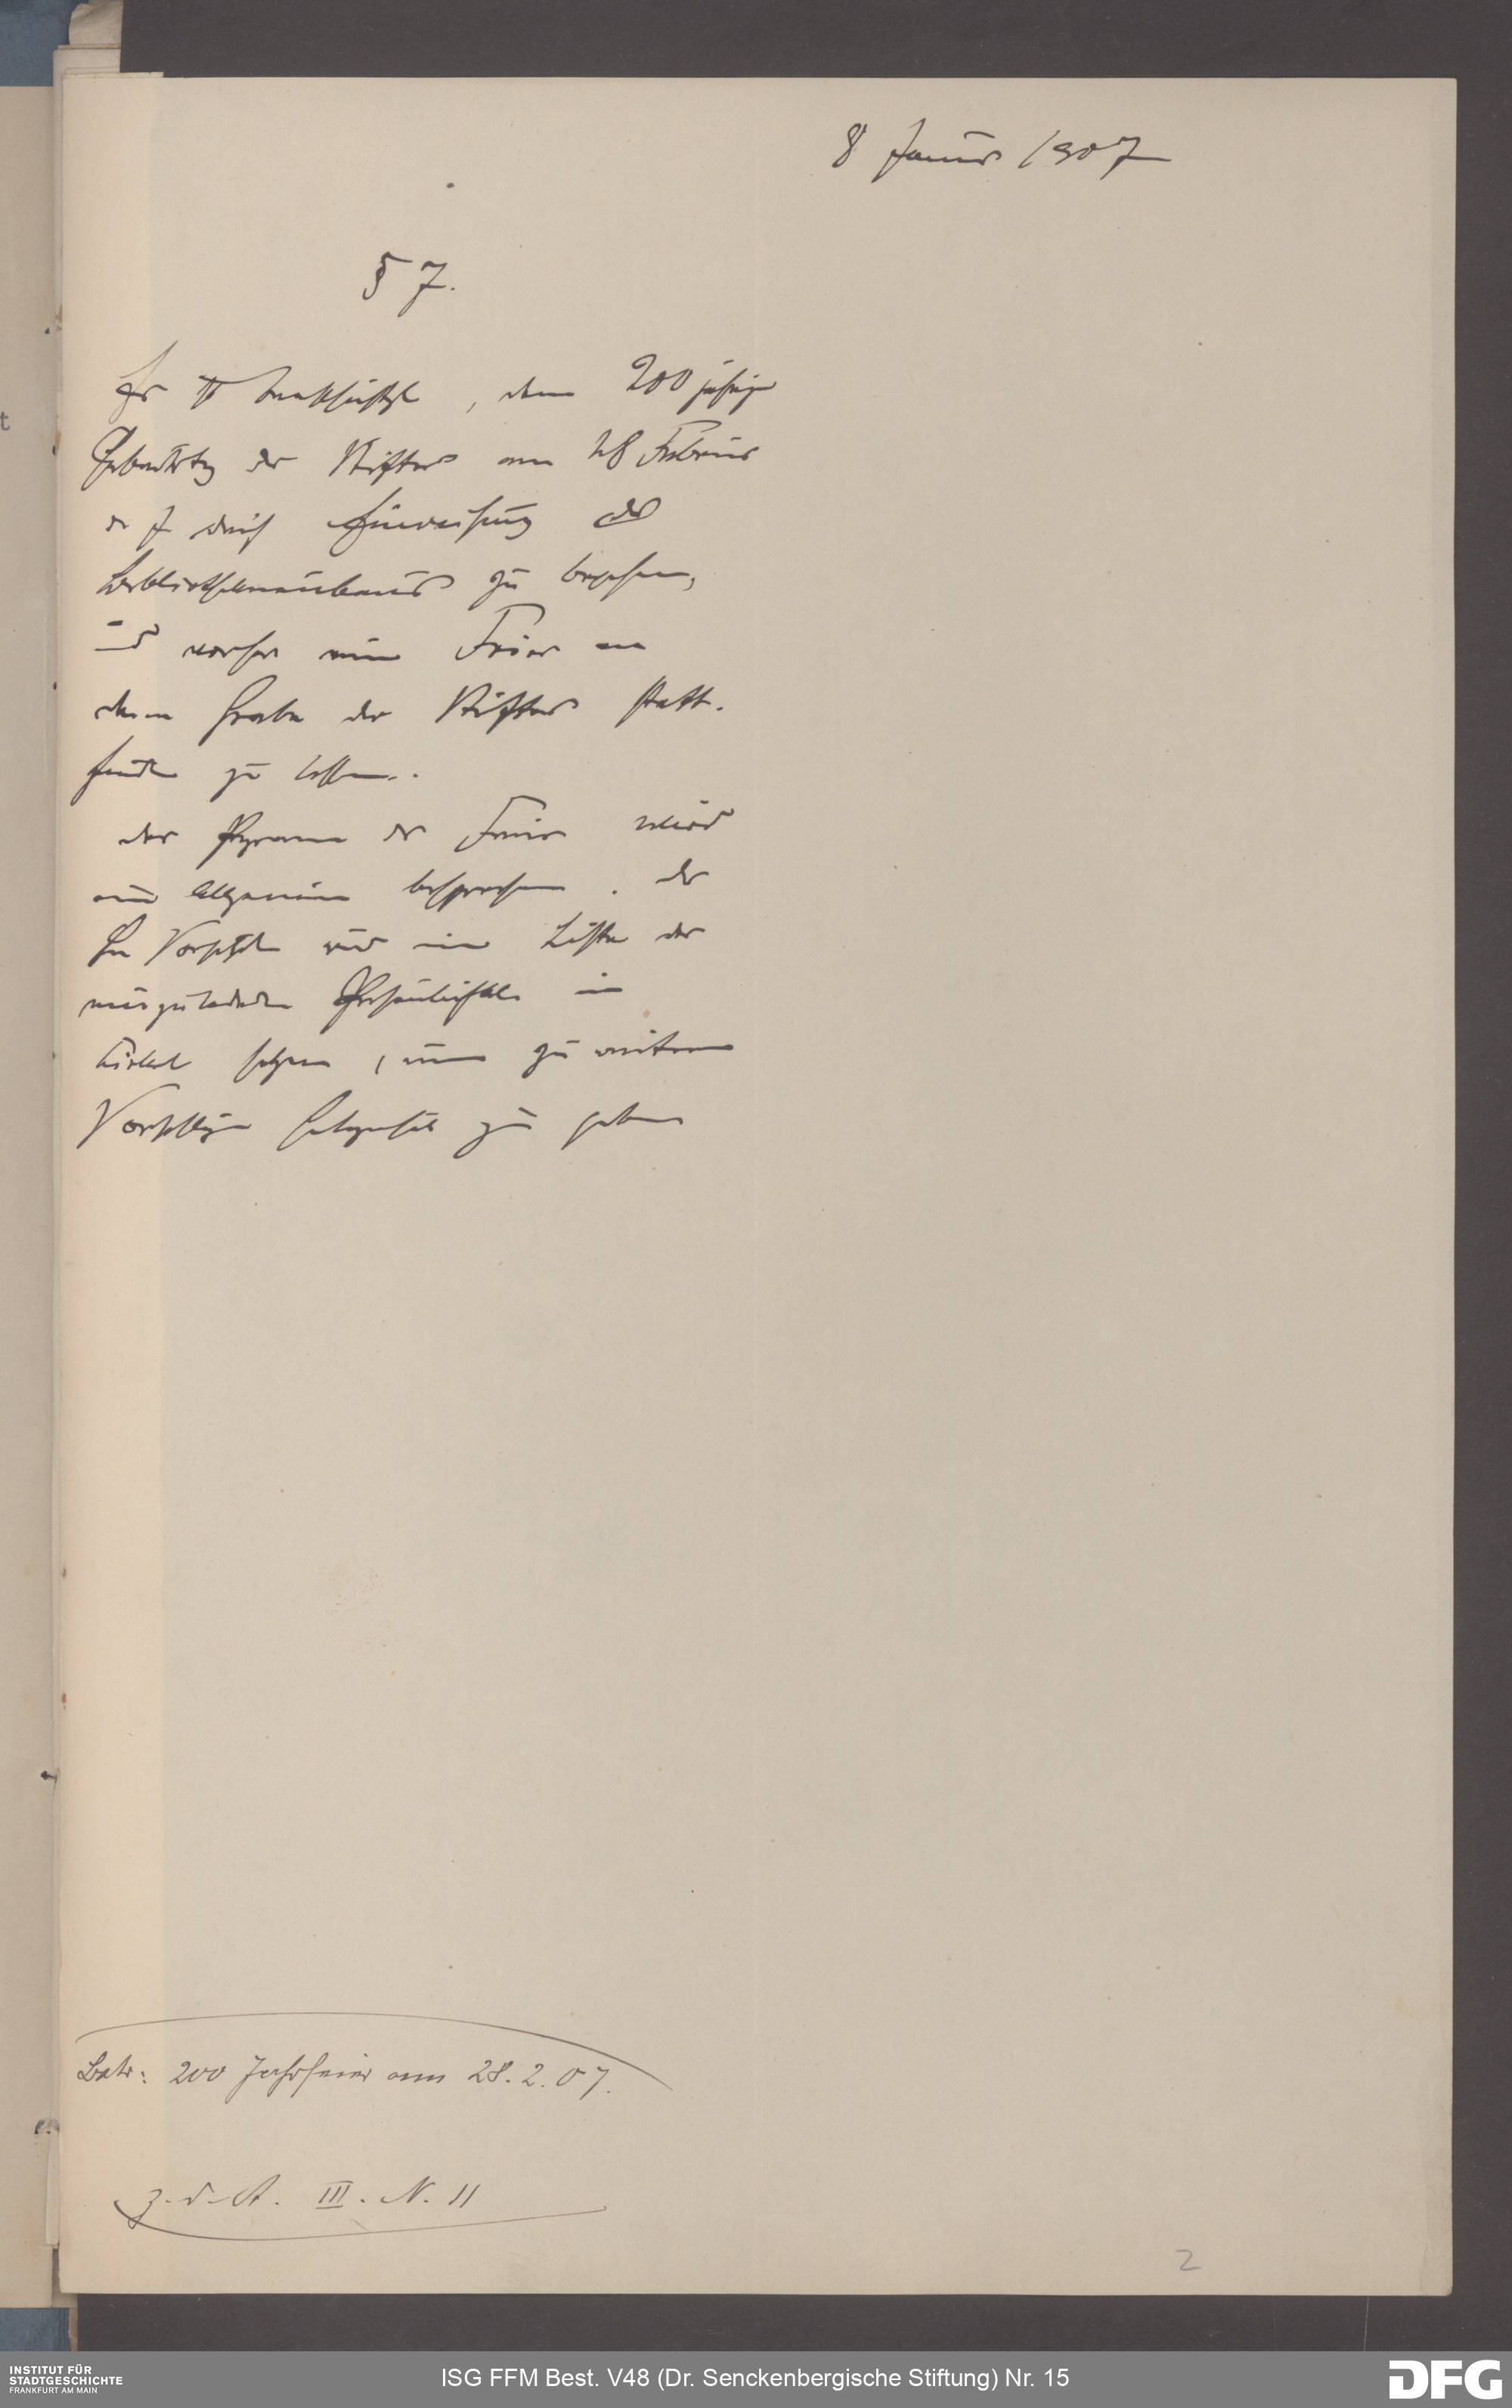 8 Januar 1907
§ 7.
Es ist beabsichtigt, den 200 jährigen
Geburtstag des Stifters am 28 Februar
d J durch Einweihung des
Bibliothekneubaues zu begehen,
und vorher eine Feier an
dem Grabe des Stifters statt-
finden zu lassen.
Das Program der Feier wird
im Allgemeinen besprochen. Der
Herr Vorsitzende wird eine Liste der
einzuladenden Persönlichkeiten in
Zirkel setzen, um zu weiteren
Vorschlägen Gelegenheit zu geben
Betr: 200 Jahrfeier am 28.2.07.
z. d. A. III. N. 11
2
t
INSTITUT FÜR
STADTGESCHICHTE
FRANKFURT AM MAIN
ISG FFM Best. V48 (Dr. Senckenbergische Stiftung) Nr. 15
DFG